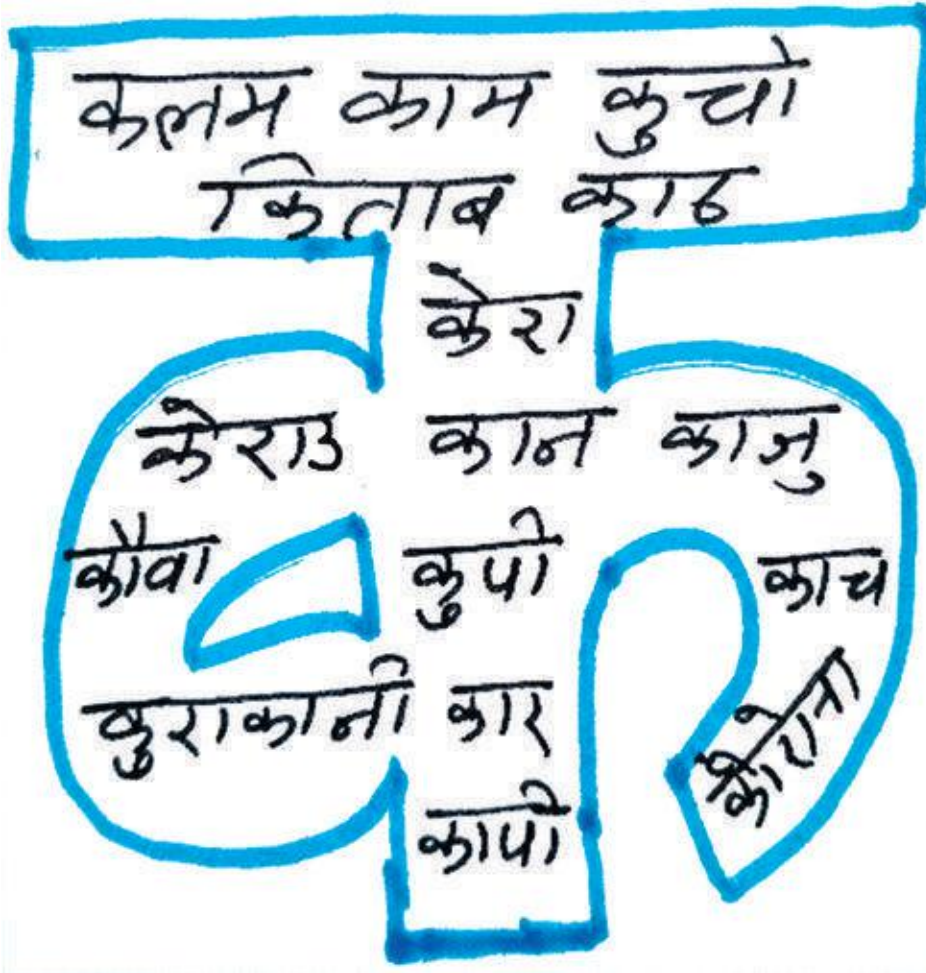 कलम काम कुचो
किताब काठ
केरा
केराउ कान काजु
कौवा कुपी काच
कुराकानी कार कोरोना
कापी